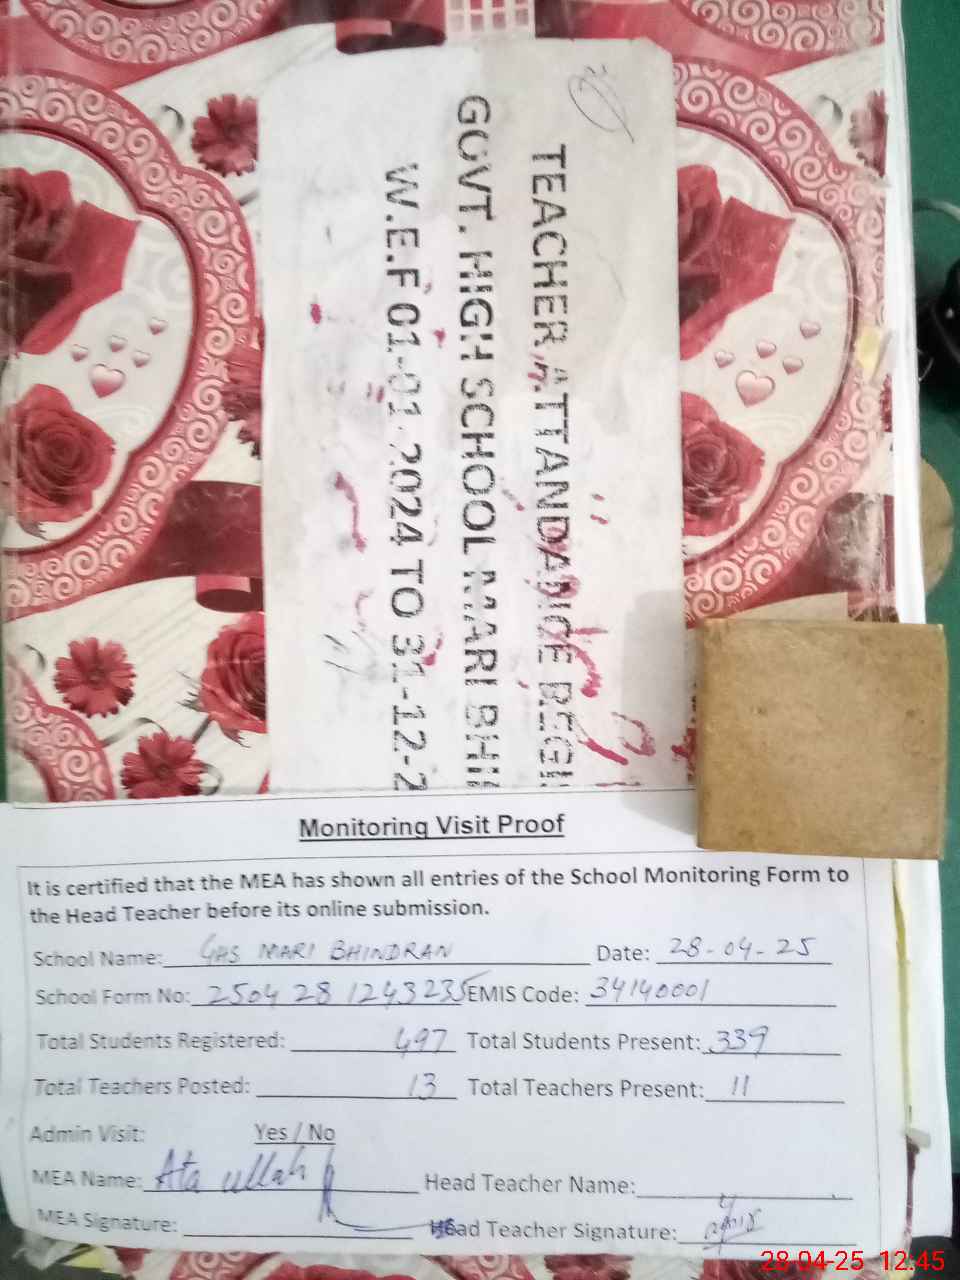 TEACHER ATTANDANCE REGI
GOVT. HIGH SCHOOL MARI BHI
W.E.F 01-01.2024 TO 31-12-2
Monitoring Visit Proof
It is certified that the MEA has shown all entries of the School Monitoring Form to
the Head Teacher before its online submission.
School Name: GHS MARI BHINDRAN Date: 28-04-25
School Form No: 2504 28 1243235 EMIS Code: 34140001
Total Students Registered: 497 Total Students Present: 339
Total Teachers Posted: 13 Total Teachers Present: 11
Admin Visit: Yes / No
MEA Name: Ata ullah Head Teacher Name:
MEA Signature: Head Teacher Signature:
28-04-25 12:45